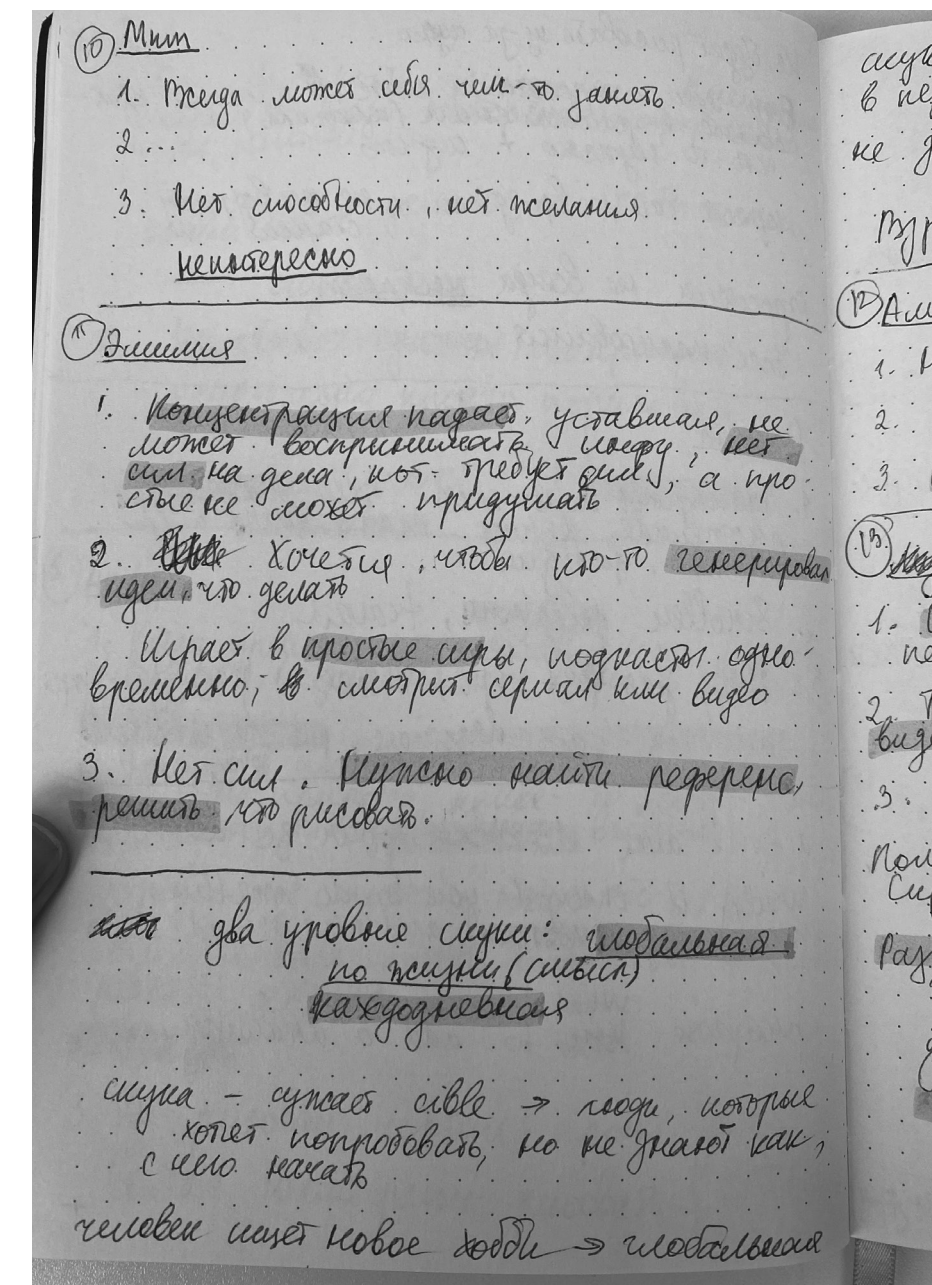 10 Мит
1. Всегда может себя чем-то занять
2...
3. Нет способности, нет желания
неинтересно
11 Эмимия
1. Концентрация падает, уставшая, не
может воспринимать инфу, нет
сил на дела, кот. требует сил, а про-
стые не может придумать
2. Хочется, чтобы кто-то генерировал
идеи, что делать
Играет в простые игры, подкасты одно-
временно, смотрит сериал или видео
3. Нет сил. Нужно найти референс,
решить что рисовать.
два уровня скуки: глобальная
по жизни (смысл)
каждодневная
скука – сужает cible → люди, которые
хотят попробовать, но не знают как,
с чего начать
человек ищет новое хобби → глобальная
в
не
12
1.
2.
3.
13
1.
2.
3.